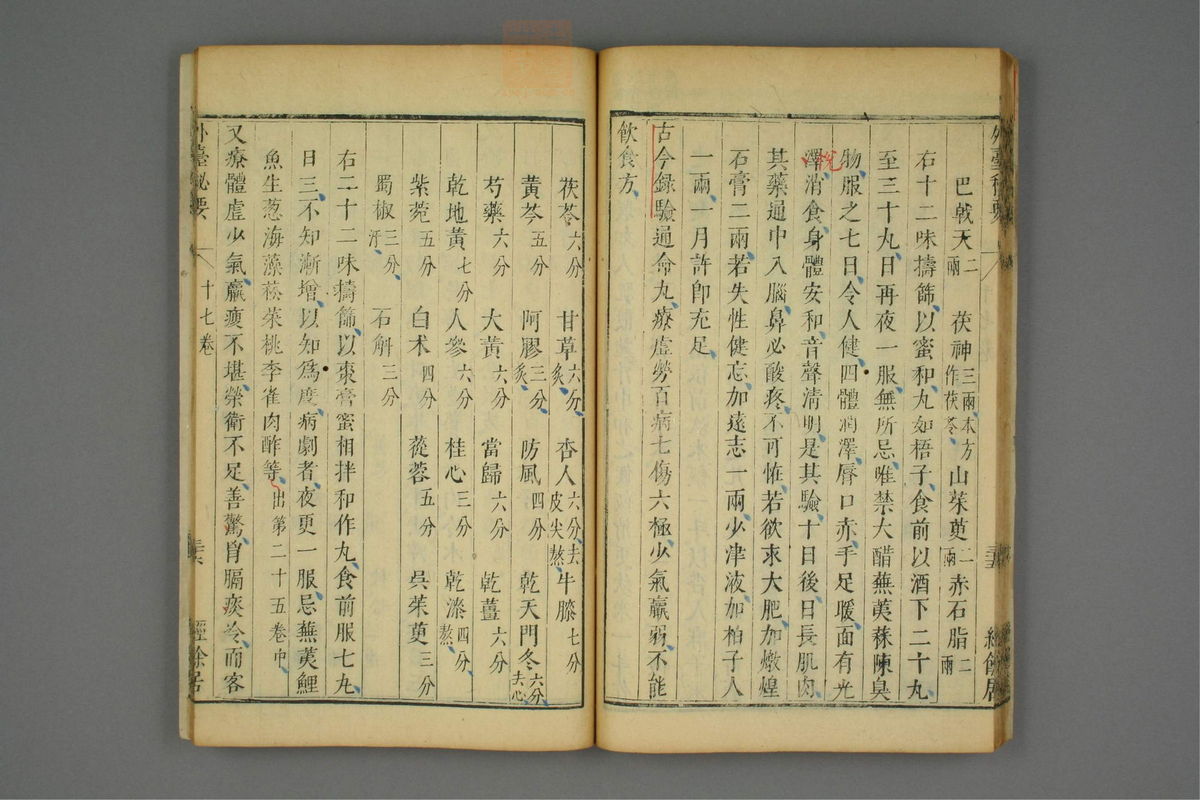 巴戟天二兩 茯神三兩本方作茯苓 山茱萸二兩 赤石脂二兩
右十二味擣篩以蜜和丸如梧子食前以酒下二十丸
至三十丸日再夜一服無所忌唯禁大醋蕪荑蒜陳臭
物服之七日令人健四體潤澤唇口赤手足暖面有光
悅
澤消食身體安和音聲清明是其驗十日後日長肌肉
其藥通中入腦鼻必酸疼不可恠若欲求大肥加燉煌
石膏二兩若失性健忘加遠志一兩少津液加柏子人
一兩一月許卽充足
古今録驗通命丸療虛勞百病七傷六極少氣羸弱不能
飲食方
外臺秘要 三十五 經餘居
茯苓六分 甘草六分炙 杏人六分去皮尖熬 牛膝七分
黃芩五分 阿膠三分炙 防風四分 乾天門冬六分去心
芍藥六分 大黃六分 當歸六分 乾薑六分
乾地黃七分 人參六分 桂心三分 乾漆四分熬
紫菀五分 白术四分 蓯蓉五分 吳茱萸三分
蜀椒三分汗 石斛三分
右二十二味擣篩以棗膏蜜相拌和作丸食前服七丸
日三不知漸增以知爲度病劇者夜更一服忌蕪荑鯉
魚生葱海藻菘菜桃李雀肉酢等出第二十五卷中
又療體虛少氣羸瘦不堪榮衛不足善驚胷膈痰冷而客
外臺秘要 十七卷 三十六 經餘居